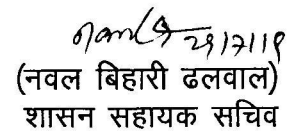 29/7/19
(नवल बिहारी ढलवाल)
शासन सहायक सचिव